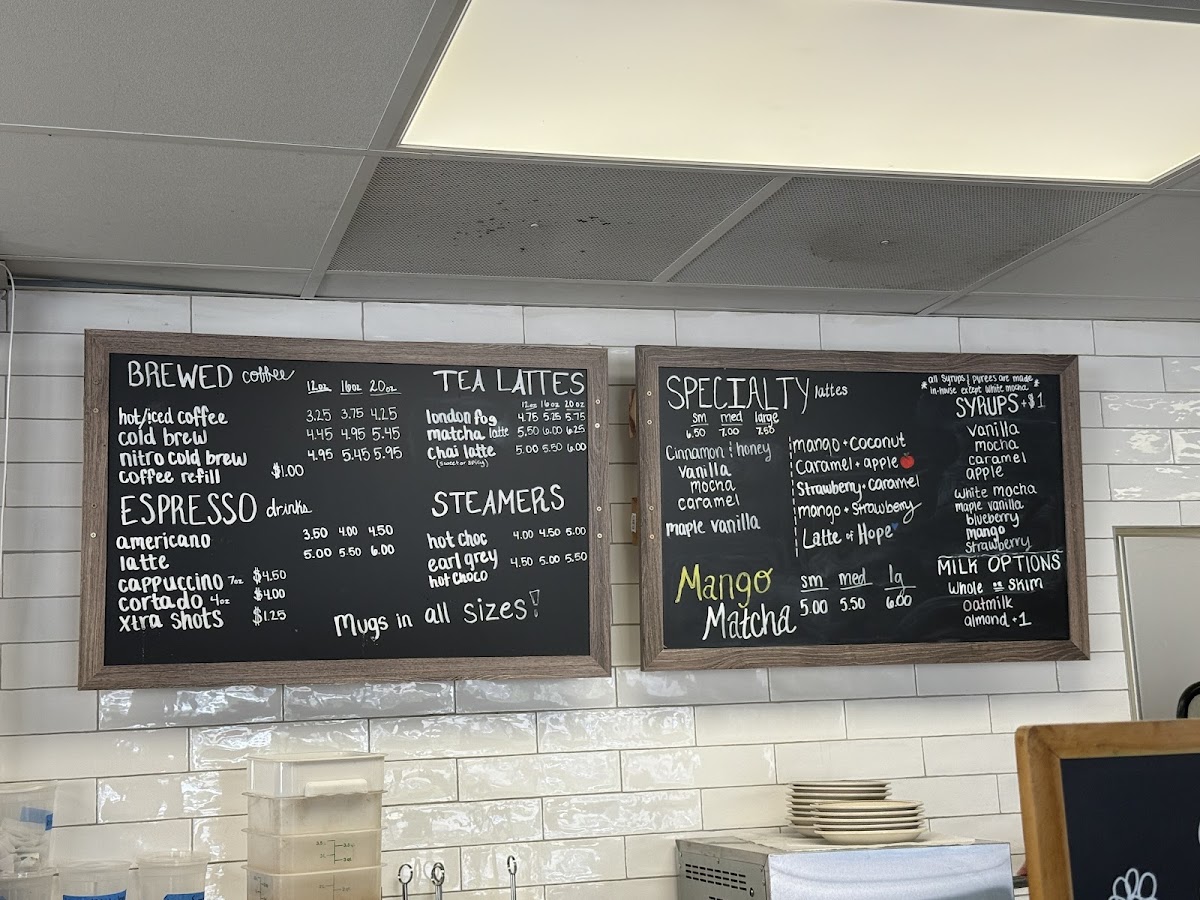 BREWED coffee
12oz 16oz 20oz
hot/iced coffee 3.25 3.75 4.25
cold brew 4.45 4.95 5.45
nitro cold brew 4.95 5.45 5.95
coffee refill $1.00
ESPRESSO drinks
americano 3.50 4.00 4.50
latte 5.00 5.50 6.00
cappuccino 7oz $4.50
cortado 4oz $4.00
xtra shots $1.25
TEA LATTES
12oz 16oz 20oz
london fog 4.75 5.25 5.75
matcha latte 5.50 6.00 6.25
chai latte 5.00 5.50 6.00
(sweet or spicy)
STEAMERS
hot choc 4.00 4.50 5.00
earl grey 4.50 5.00 5.50
hot choco
Mugs in all sizes!
SPECIALTY lattes
sm med large
6.50 7.00 7.50
Cinnamon & honey
vanilla
mocha
caramel
maple vanilla
mango + coconut
caramel + apple
Strawberry + caramel
mango + strawberry
Latte of Hope
Mango
Matcha
sm med lg
5.00 5.50 6.00
*all syrups/purees are made
in-house except white mocha*
SYRUPS +$1
vanilla
mocha
caramel
apple
white mocha
maple vanilla
blueberry
mango
strawberry
MILK OPTIONS
Whole or SKIM
oatmilk
almond +1